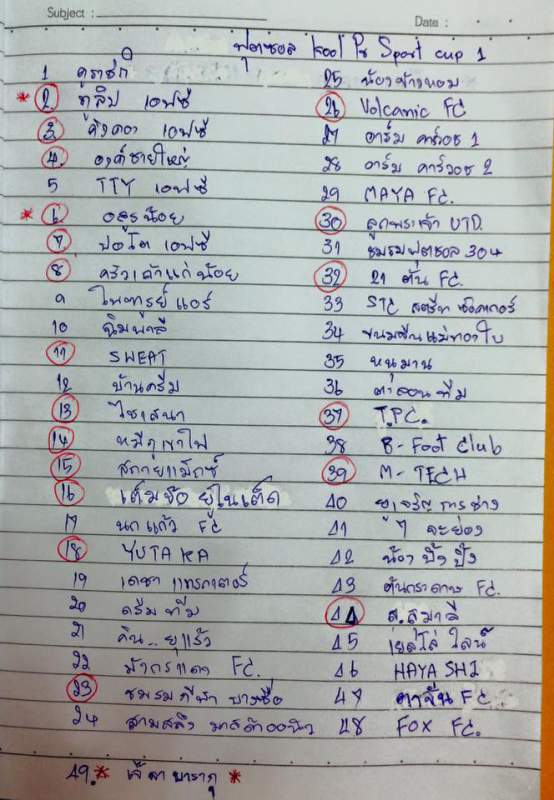 Subject :
Date :
ฟุตซอล Kool TV Sport cup 1
1
* 2 ทูลิป เอฟซี
3 คิงดอา เอฟซี
4 องค์ชายใหญ่
5 TTY เอฟซี
* 6 อสูรน้อย
7 ปอโต เอฟซี
8 ครัวเค้าแก่น้อย
9 ไพฑูรย์แอร์
10 ฉิมพาลี
11 SWEAT
12 บ้านครีม
13 ไชเสนา
14 หมีภูเขาไฟ
15 สกายแม็กซ์
16 เต็มข้อ ยูไนเต็ด
17 นกแก้ว FC
18 YUTAKA
19 เดชา แทรกเตอร์
20 ดรีมทีม
21 คืน... ยุแร้ว
22 FC.
23 ชมรมกีฬา บางซื่อ
24 สามสลึง
25 น้องข้าวหอม
26 Volcanic FC
27 อาร์ม คาร์วอช 1
28 อาร์ม คาร์วอช 2
29 MAYA FC.
30 ลูกพระเจ้า UTD.
31 ชมรมฟุตซอล 304
32 21 ตัน FC.
33 STC สตรีท
34 ขนมจีนแม่ทองใบ
35 หนุมาน
36 ตาลอนทีม
37 T.P.C.
38 B-Foot Club
39 M-TECH
40 ยูเจริญการช่าง
41 ๆ จะย่อง
42 น้องปิ้งปิ้ง
43 ต้นกระดาษ FC.
44 ส.สมาลี
45 เยลโล่ ไลน์
46 HAYASHI
47 FC
48 FOX FC.
49. * เจ๊ดา บารากุ *